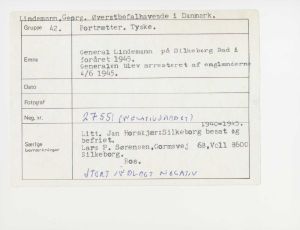 Lindemann, Georg. Øverstbefalhavende i Danmark.
Gruppe 42. Portrætter. Tyske.
Emne General Lindemann på Silkeborg Bad i foråret 1945.
Generalen blev arresteret af englænderne 4/6 1945.
Dato
Fotograf
Neg. nr. 27551 (NEGATIVARKET)
1940-1945.
Særlige bemærkninger Litt. Jan Horskjær: Silkeborg besat og befriet.
Lars P. Sørensen, Gormsvej 68, Voll 8600 Silkeborg.
Ros.
STORT IØDLAGT NEGATIV